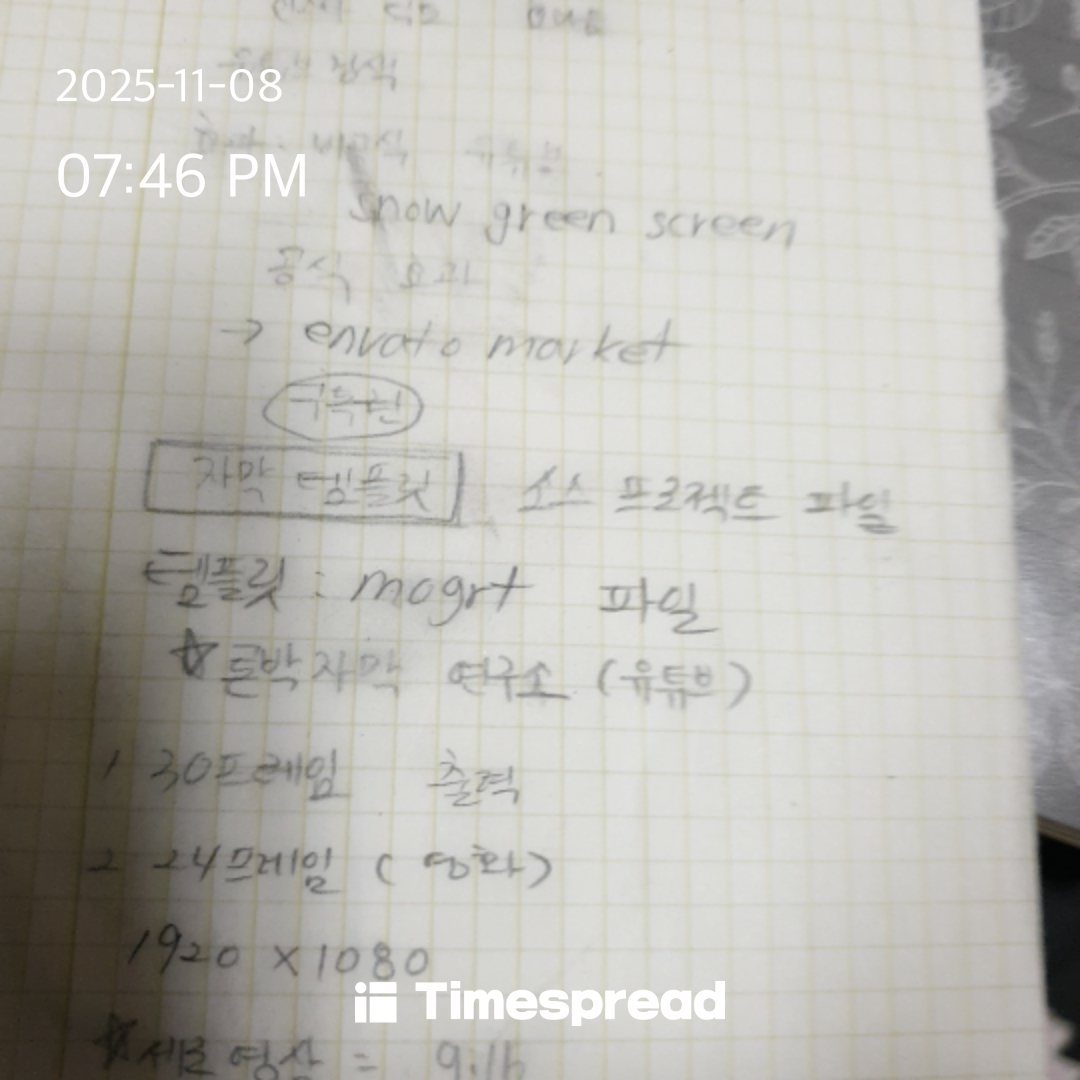 2025-11-08
07:46 PM
snow green screen
공식 효과
→ envato market
구독권
자막 템플릿 소스 프로젝트 파일
템플릿 : mogrt 파일
자막 연구소 (유튜브)
1 30프레임 출력
2 24프레임 (영화)
1920 x 1080
Timespread
★세로영상 = 9:16